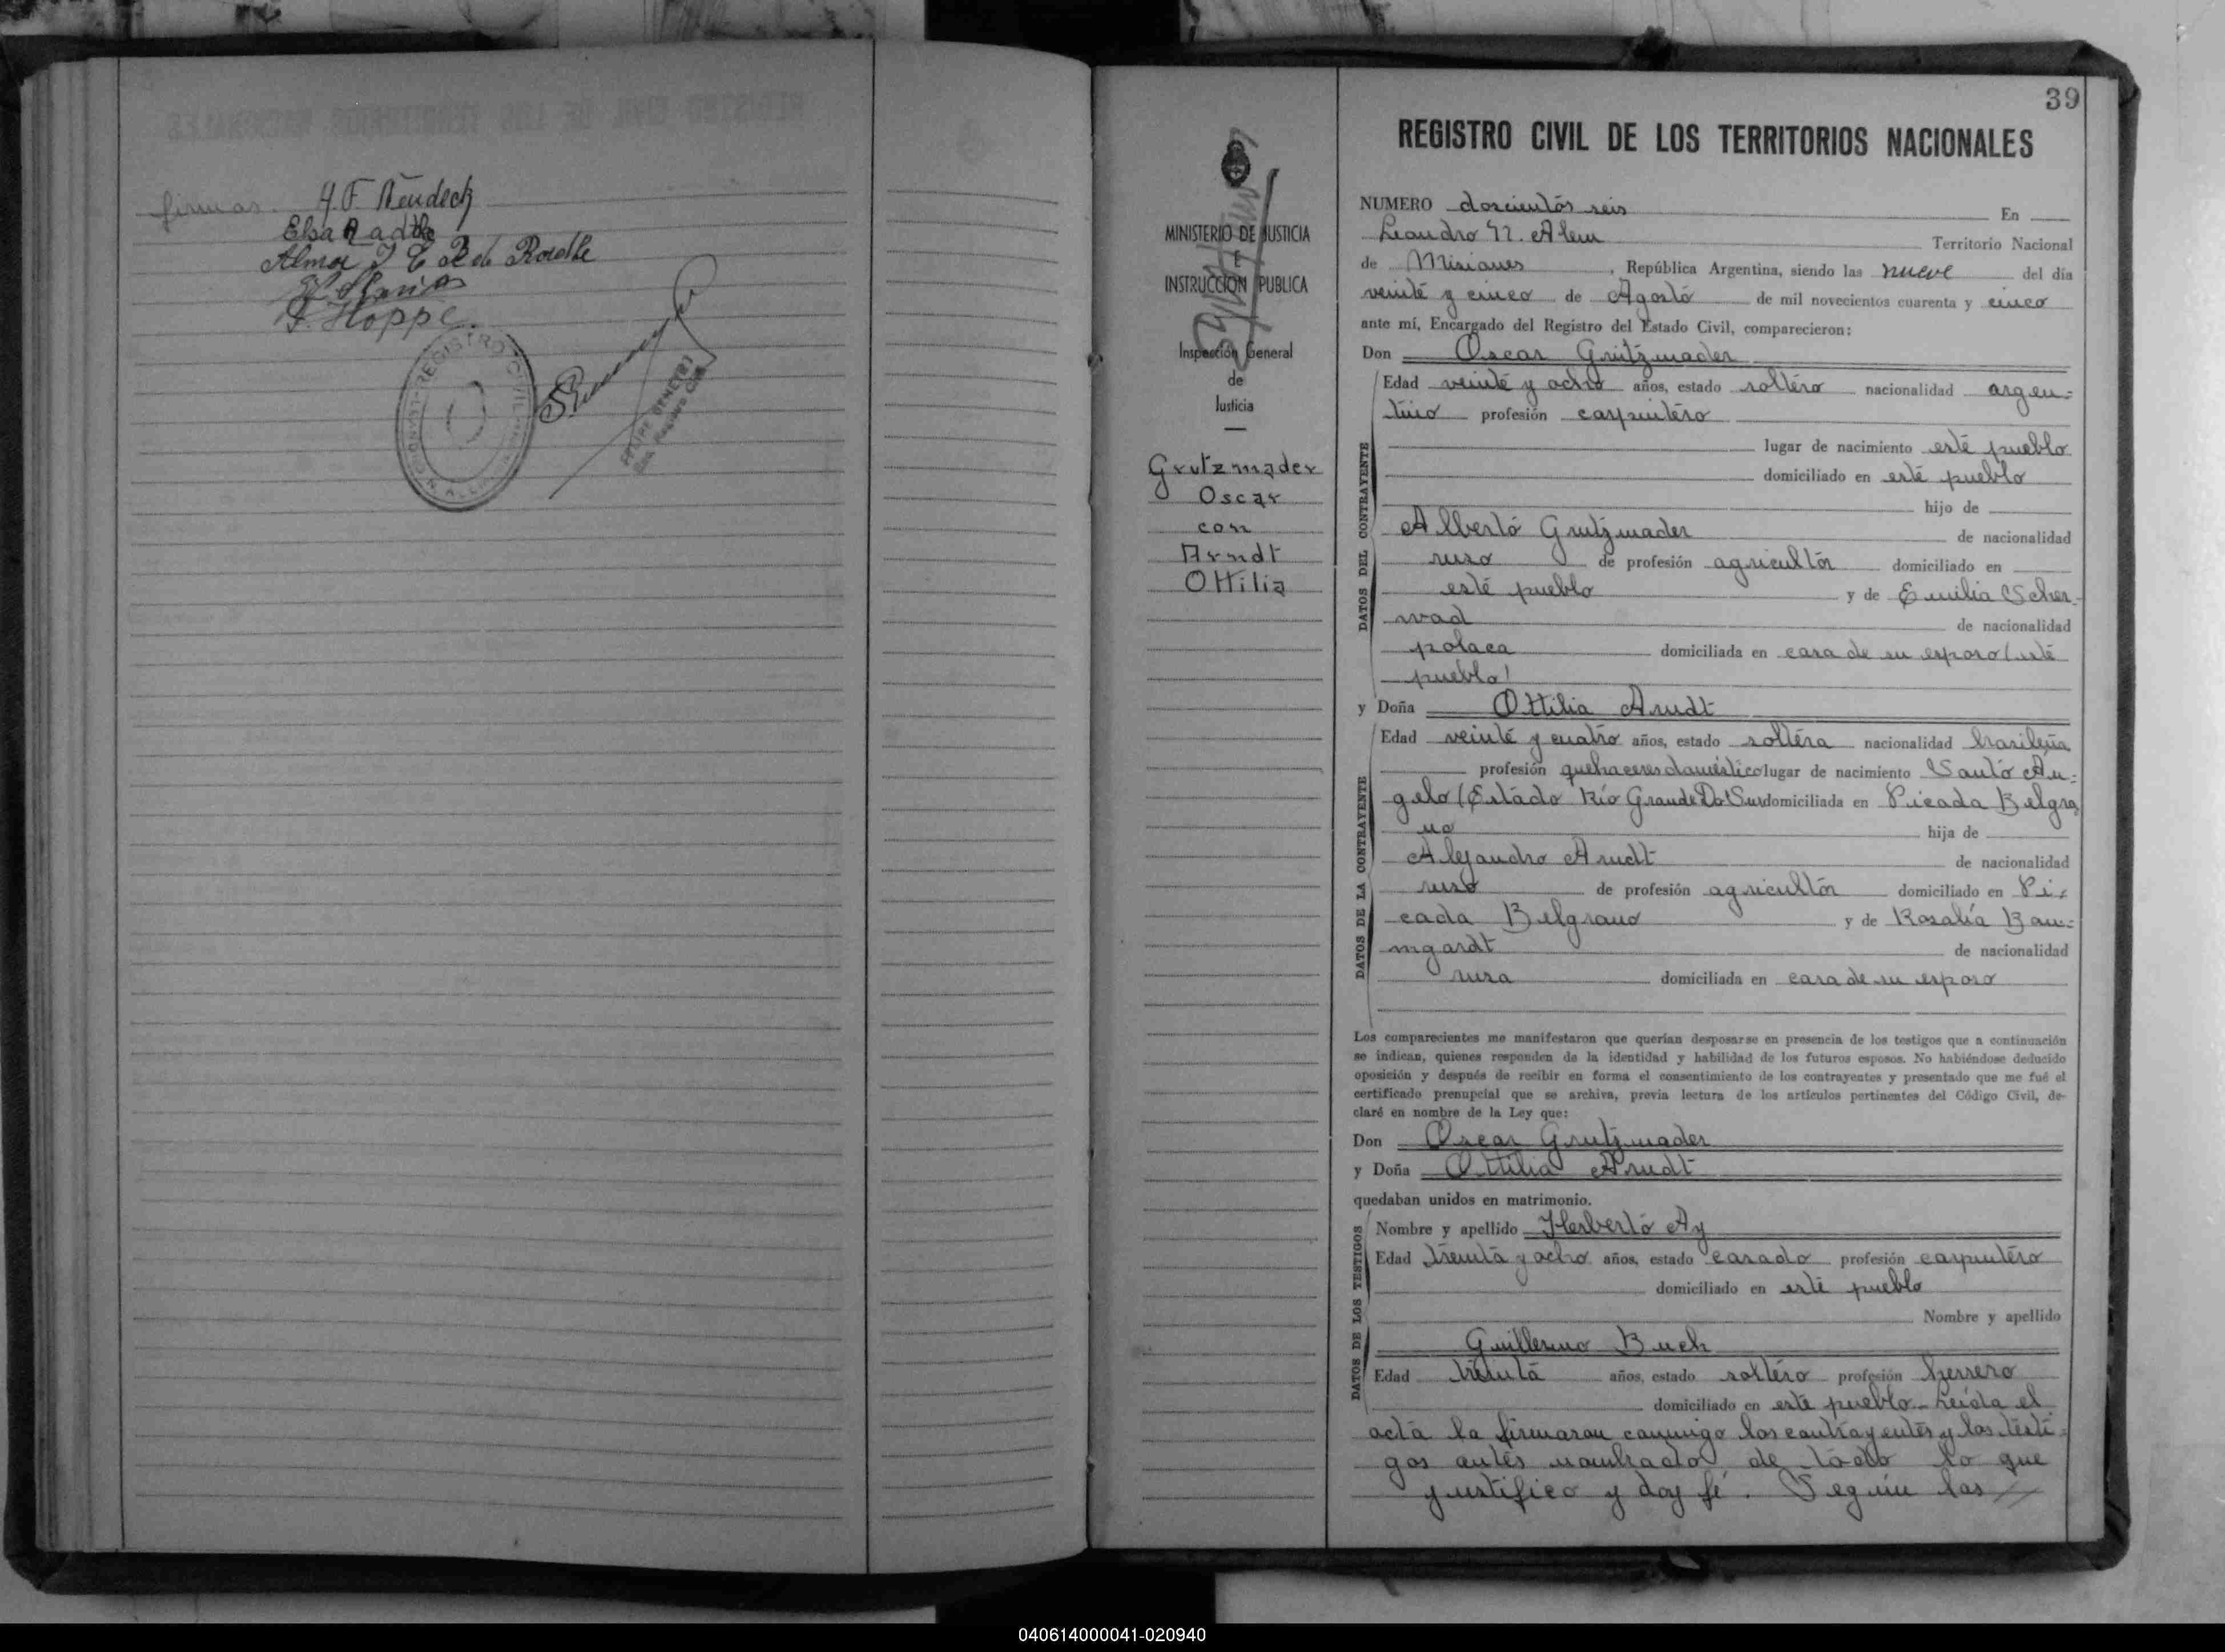 firmas.
H. F. Neudeck
Elsa Radtke
Alma
Hoppe
REGISTRO CIVIL
39
REGISTRO CIVIL DE LOS TERRITORIOS NACIONALES
MINISTERIO DE JUSTICIA
E
INSTRUCCIÓN PUBLICA
Inspección General
de
Justicia
Grutzmader
Oscar
con
Arndt
Ottilia
NUMERO doscientos seis En
Leandro N. Alem Territorio Nacional
de Misiones, República Argentina, siendo las nueve del día
veinte y cinco de Agosto de mil novecientos cuarenta y cinco
ante mí, Encargado del Registro del Estado Civil, comparecieron:
Don Oscar Grützmader
DATOS DEL CONTRAYENTE
Edad veinte y ocho años, estado soltero nacionalidad argen=
tino profesión carpintero
lugar de nacimiento este pueblo
domiciliado en este pueblo
hijo de
Alberto Grutzmader de nacionalidad
ruso de profesión agricultor domiciliado en
este pueblo y de Emilia Scher-
wad de nacionalidad
polaca domiciliada en casa de su esposo (este
pueblo)
y Doña Ottilia Arndt
DATOS DE LA CONTRAYENTE
Edad veinte y cuatro años, estado soltera nacionalidad brasileña
profesión quehaceres doméstico lugar de nacimiento Santo An=
gelo (Estado Río Grande Do Sur domiciliada en Picada Belgra
no hija de
Alejandro Arndt de nacionalidad
ruso de profesión agricultor domiciliado en Pi=
cada Belgrano y de Rosalía Bau=
mgardt de nacionalidad
rusa domiciliada en casa de su esposo
Los comparecientes me manifestaron que querían desposarse en presencia de los testigos que a continuación
se indican, quienes responden de la identidad y habilidad de los futuros esposos. No habiéndose deducido
oposición y después de recibir en forma el consentimiento de los contrayentes y presentado que me fué el
certificado prenupcial que se archiva, previa lectura de los artículos pertinentes del Código Civil, de-
claré en nombre de la Ley que:
Don Oscar Grutzmader
y Doña Ottilia Arndt
quedaban unidos en matrimonio.
DATOS DE LOS TESTIGOS
Nombre y apellido Herberto Ay
Edad treinta y ocho años, estado casado profesión carpintero
domiciliado en este pueblo
Nombre y apellido
Guillermo Buch
Edad treinta años, estado soltero profesión herrero
domiciliado en este pueblo. Leída el
acta la firmaron conmigo los contrayentes y los testi=
gos antes nombrado de todo lo que
justifico y doy fé. Según las //
040614000041-020940